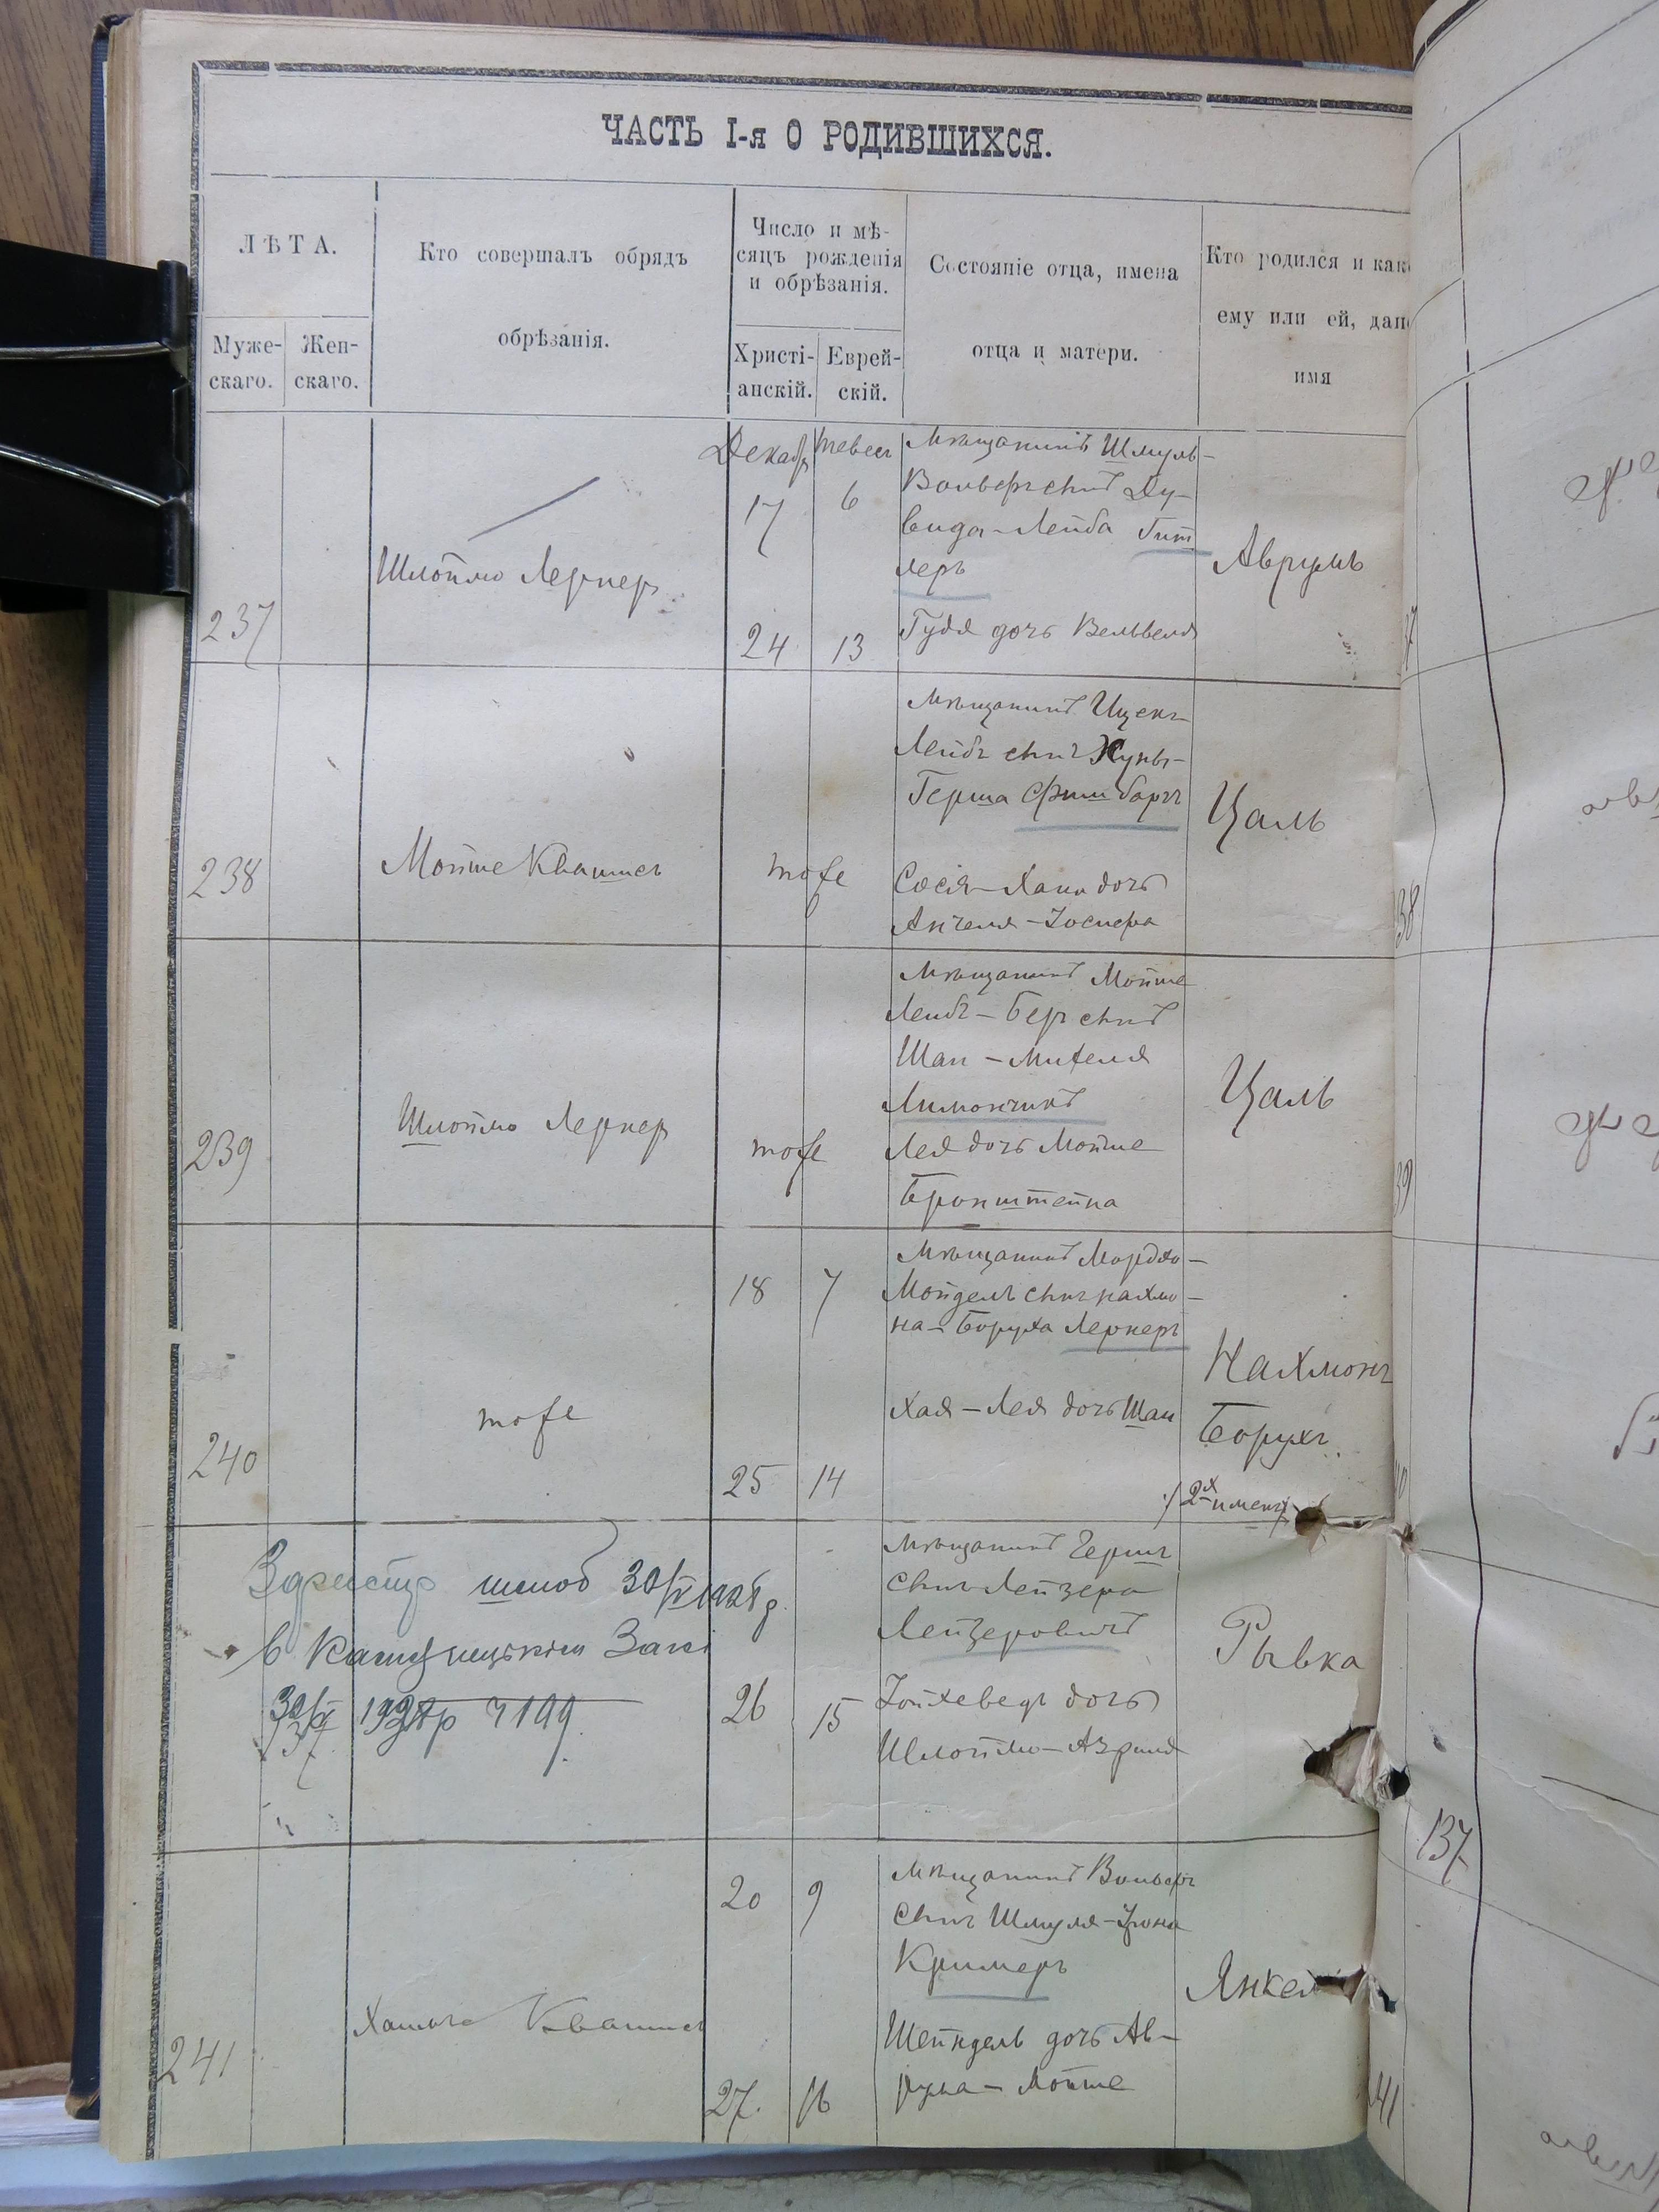 ЧАСТЬ I-я О РОДИВШИХСЯ.
ЛѢТА.
Муже-
скаго.
Жен-
скаго.
Кто совершалъ обрядъ
обрѣзанія.
Число и мѣ-
сяцъ рожденія
и обрѣзанія.
Христі-
анскій.
Еврей-
скій.
Состояніе отца, имена
отца и матери.
Кто родился и како
ему или ей, дано
имя
237
Шлоймо Лернеръ
Декабр
Тевес
17
6
24
13
Мѣщанинъ Шмуль-
Вольфъ сынъ Ду-
вида-Лейба Гит
леръ
Гудя дочь Вельвеля
Аврумъ
238
Мойше Квашисъ
тоже
Мѣщанинъ Ицекъ-
Лейбъ сынъ Хуны-
Герша Фишбаргъ
Сося-Хана дочь
Анчеля-Іосифа
Цаль
239
Шлоймо Лернеръ
тоже
Мѣщанинъ Мойше
Лейбъ-Беръ сынъ
Шаи-Михеля
Лимончикъ
Лея дочь Мойше
Бронштейна
Цаль
240
тоже
18
7
25
14
Мѣщанинъ Мордхо-
Мойдель сынъ Нахмо-
на-Боруха Лернеръ
Хая-Лея дочь Шаи
Нахмонъ
Борухъ
2-х именъ
шлюб 30/IX 1928 р.
в
1928р ч 199.
26
15
Мѣщанинъ Гершъ
сынъ Лейзера
Лейзеровичъ
Іойхеведъ дочь
Шлоймо-Азриля
Рывка
241
Квашисъ
20
9
27.
16
Мѣщанинъ Вольфъ
сынъ Шмуля-Ірона
Кримеръ
Шейндель дочь Ав-
рума-Мойше
Янкель
38
39
137
41